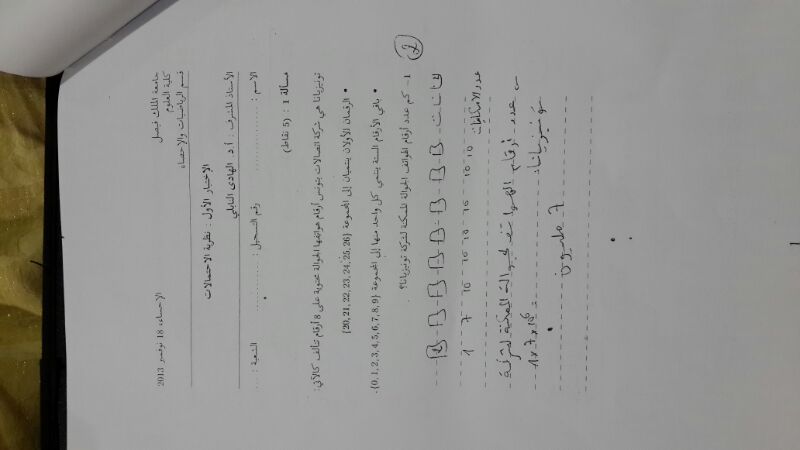 جامعة الملك فيصل
كلية العلوم
قسم الرياضيات والإحصاء
الاحساء، 18 نوفمبر 2013
الإختبار الأول : نظرية الاحتمالات
الأستاذ المشرف : أ.د. الهادي النابلي
الاسم : .................. رقم التسجيل : ............ الشعبة : ....
مسألة 1 : (5 نقاط)
تونيزيانا هي شركة اتصالات بتونس أرقام هواتفها الجوالة محتوية على 8 أرقام تتألف كالآتي:
• الرقمان الأولان ينتميان إلى المجموعة {20, 21, 22, 23, 24, 25, 26}
• باقي الأرقام الستة ينتمي كل واحد منها إلى المجموعة {0, 1, 2, 3, 4, 5, 6, 7, 8, 9}.
1 – كم عدد أرقام الهواتف الجوالة الممكنة لشركة تونيزيانا؟
2
خانات
عدد الامكانيات
1 7 10 10 10 10 10 10
عدد أرقام الهواتف الجوالة الممكنة لشركة
تونيزيانا
1 x 7 x 10⁶ =
7 مليون